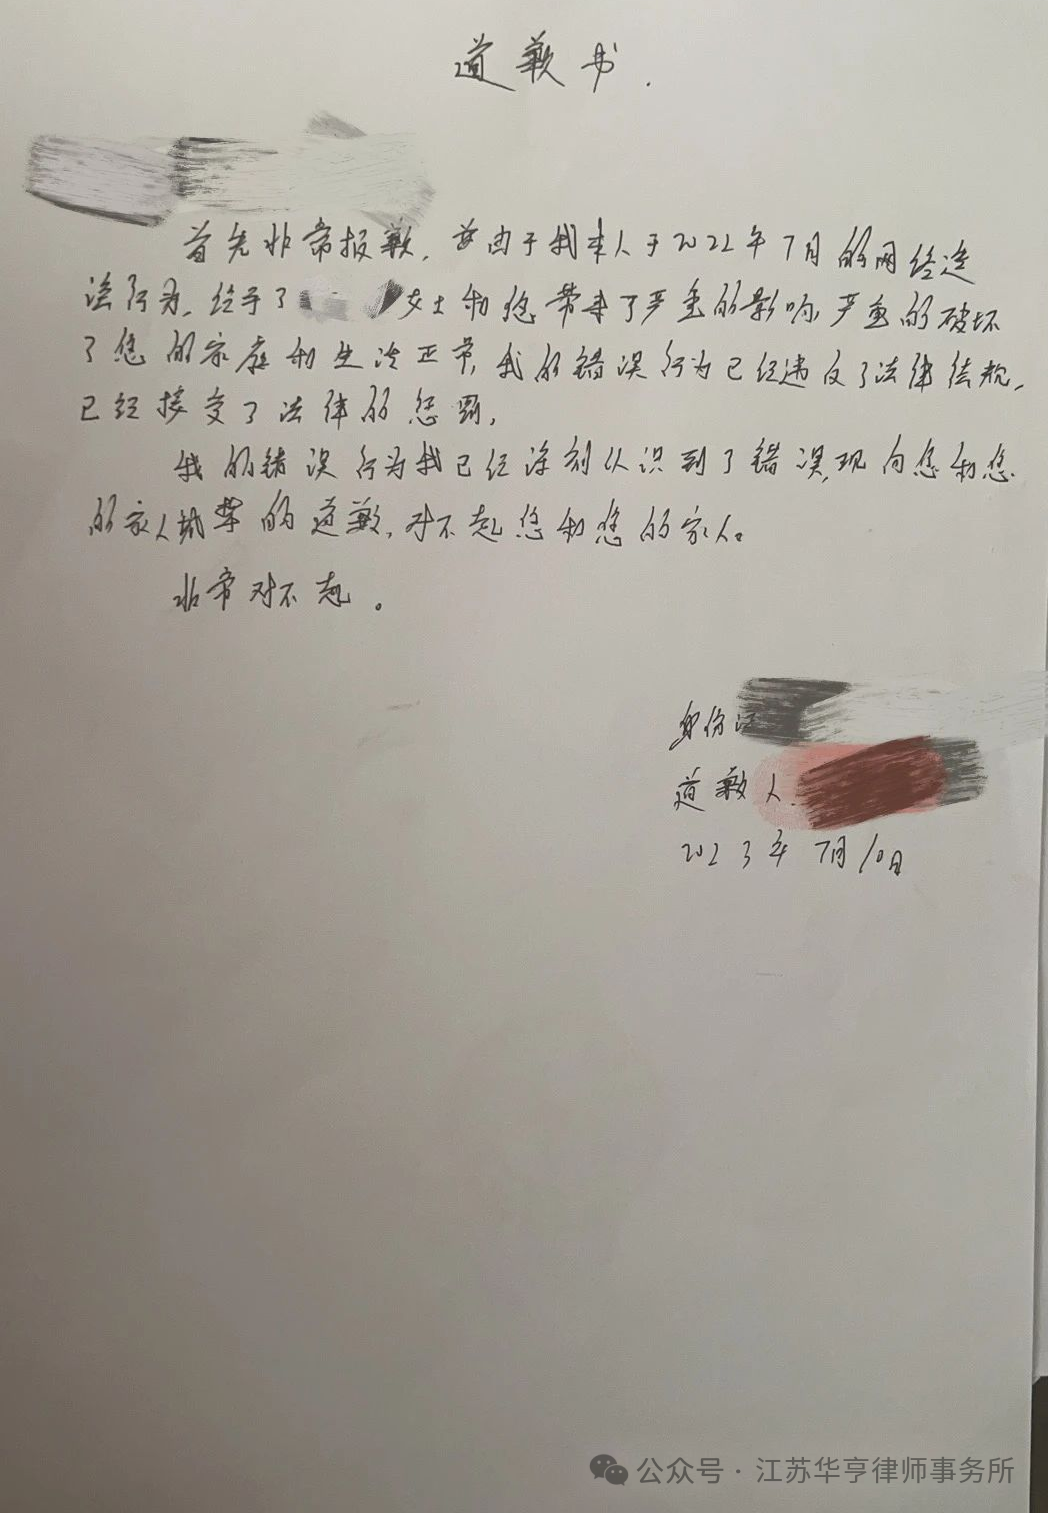 道歉书.
首先非常报歉,由于我本人于2022年7月的网络违
法行为,给予了 女士和您带来了严重的影响,严重的破坏
了您的家庭和生活正常,我的错误行为已经违反了法律法规,
已经接受了法律的惩罚,
我的错误行为我已经深刻认识到了错误,现向您和您
的家人诚挚的道歉,对不起您和您的家人。
非常对不起。
身份证
道歉人.
2023年7月10日
公众号·江苏华亨律师事务所